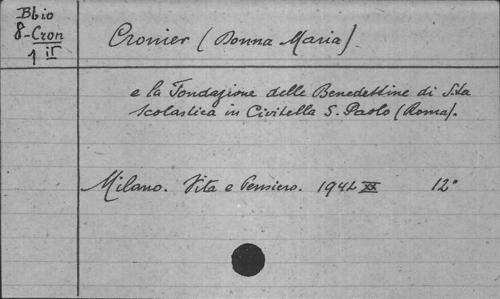 Bbio
8-Cron
1 II
Cronier (Donna Maria)
e la Fondazione delle Benedettine di S.ta
Scolastica in Civitella S. Paolo (Roma).
Milano. Vita e Pensiero. 1942 XX 12°